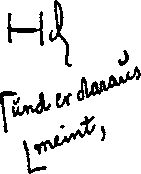 Hd
⌈ünd er daraüs
⌊meint,